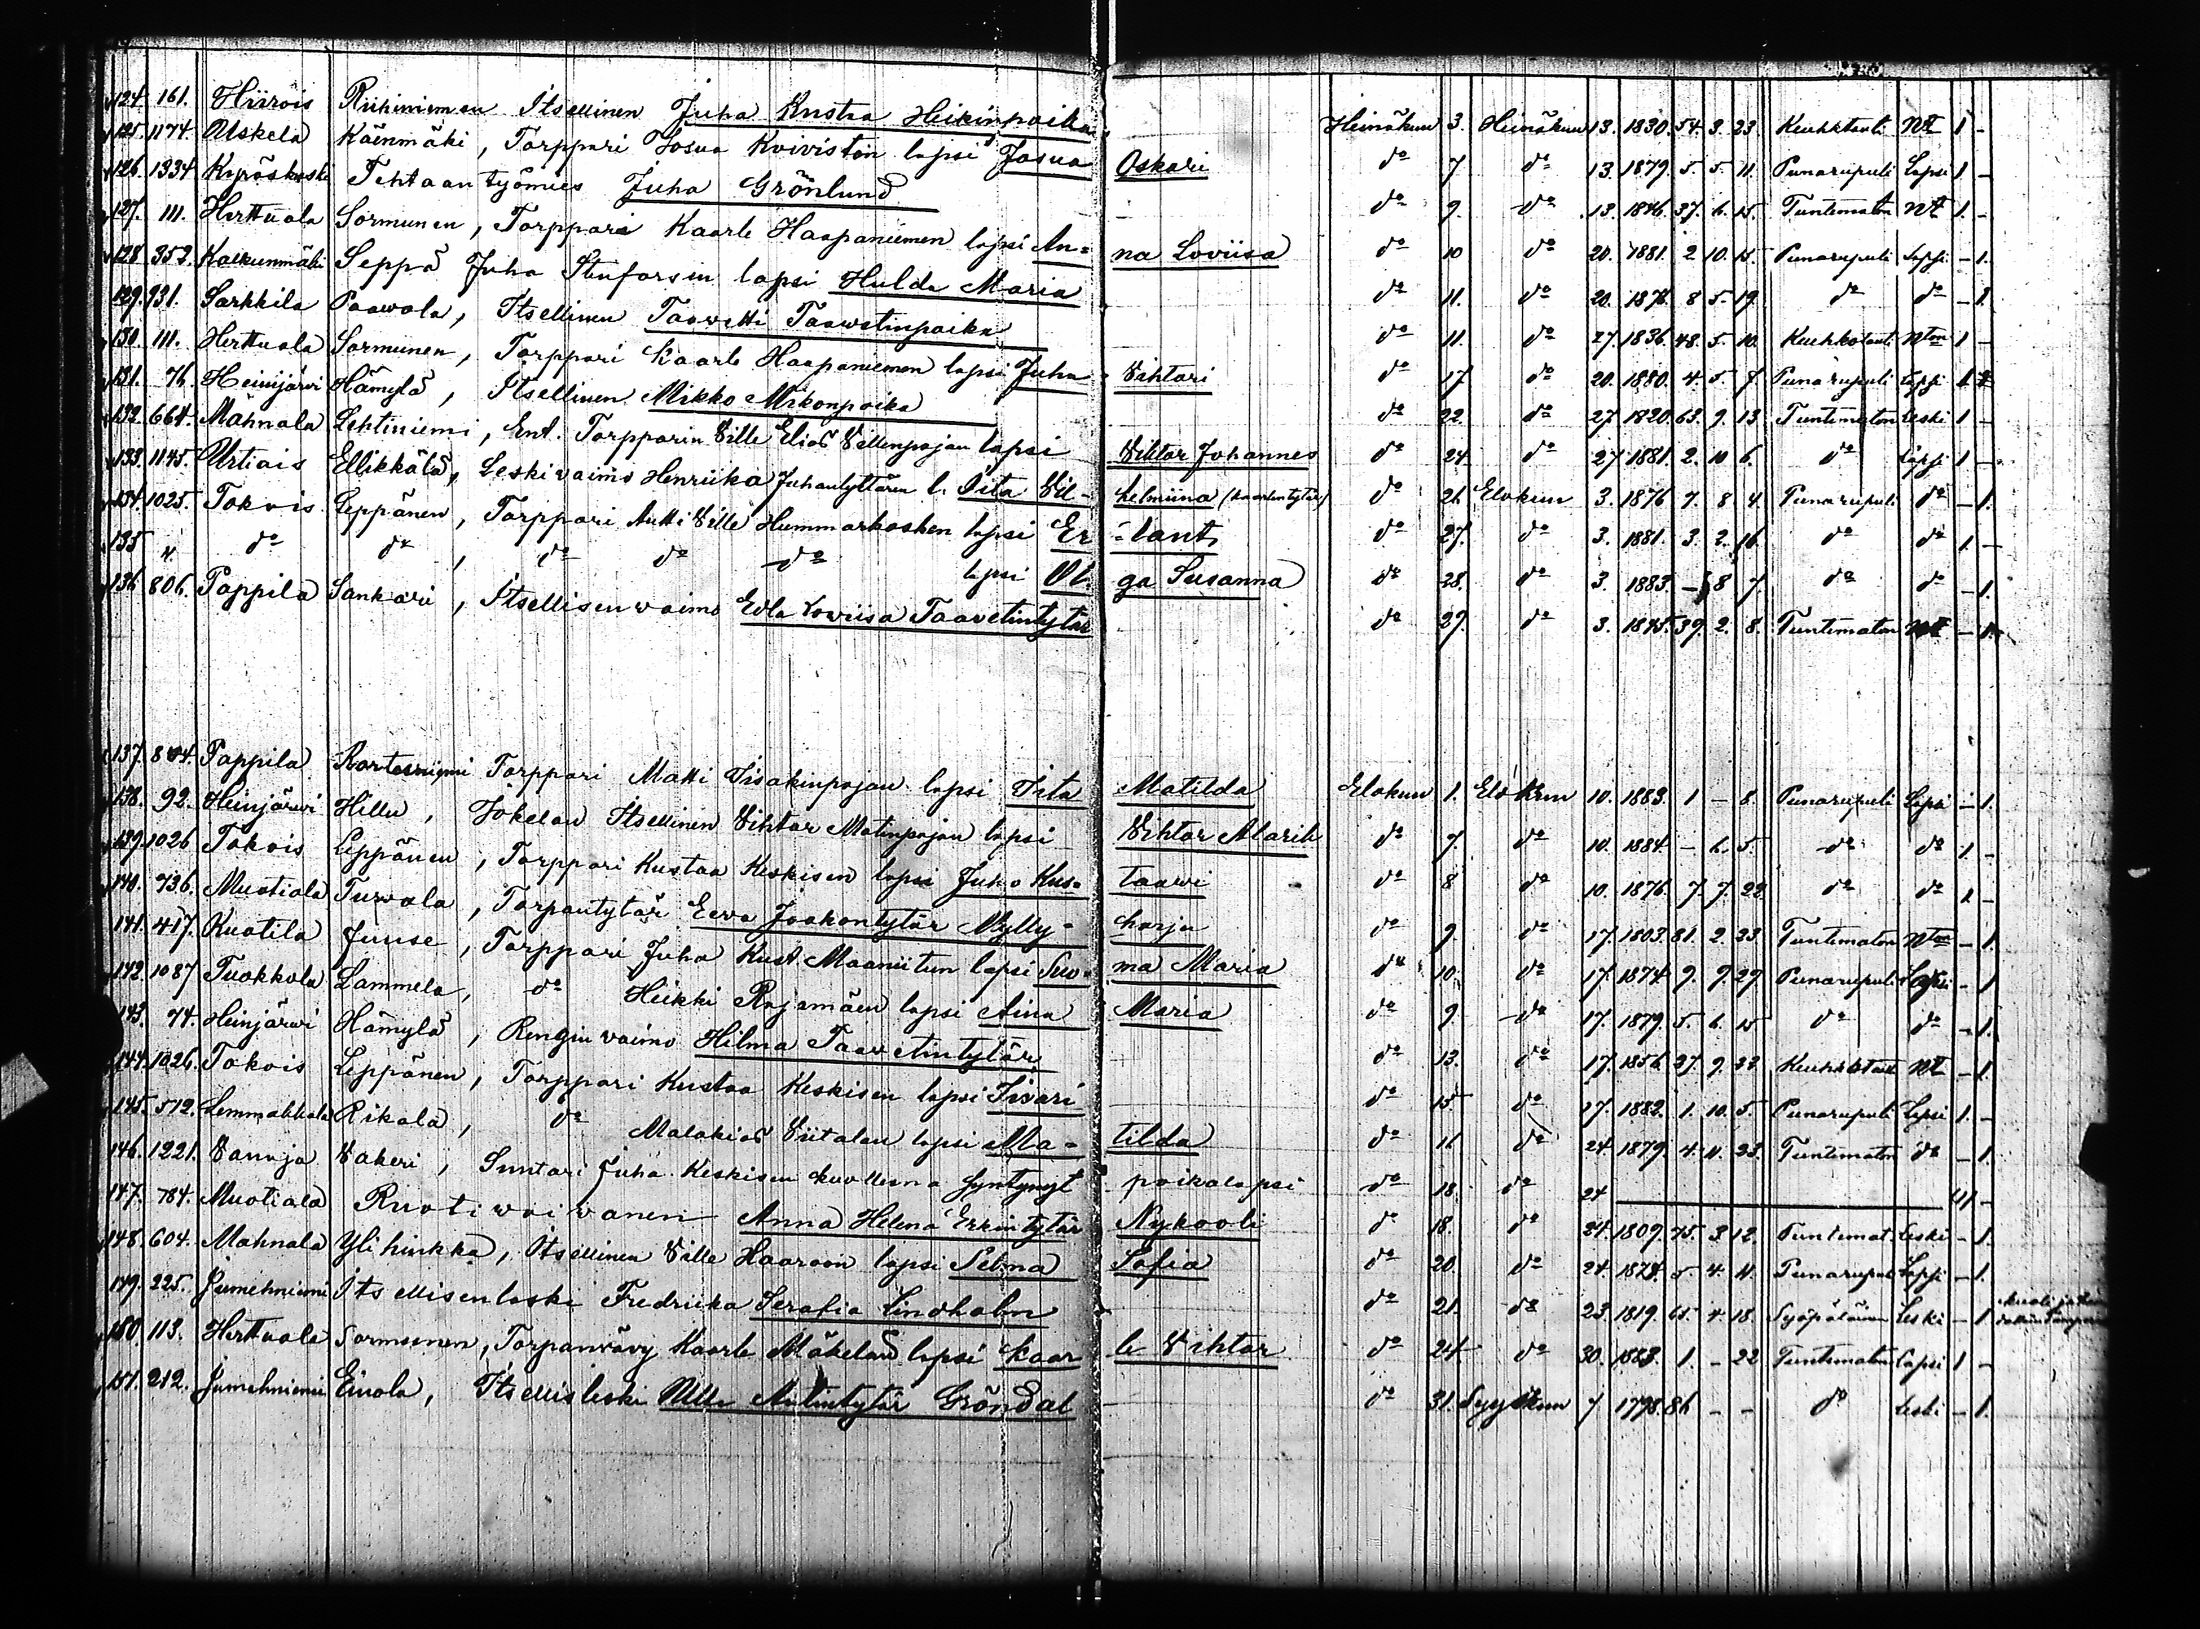 124. 161. Hiirois Riihiniemen Itsellinen Juha Kustaa Heikinpoika Heinäkuu 3. Heinäkuu 13. 1830. 54. 3. 23 Keuhkotauti Nt 1 -
125. 1174. Uskela Käenmäki, Torppari Josua Koiviston lapsi Josua Oskari do 7 do 13. 1879. 5. 5. 11. Punarupuli Lapsi 1 -
126. 1334 Kyröskoski Tehtaan työmies Juha Grönlund do 9. do 13. 1846. 37. 6. 15. Tuntematon Nt 1. -
127. 111. Herttuala Sormunen, Torppari Kaarle Haapaniemen lapsi An= na Loviisa do 10 do 20. 1881. 2 10. 15. Punarupuli Lapsi - 1.
128. 353. Kalkunmäki Seppä Juha Stenforsin lapsi Hulda Maria do 11. do 20. 1876. 8 5. 19. do do - 1
129. 931. Sarkkila Paawola, Itsellinen Taawetti Taawetinpoika do 11. do 27. 1836. 48. 5. 10. Keuhkotauti Ntm 1 -
130. 111. Herttuala Sormunen, Torppari Kaarle Haapaniemen lapsi Juha Vihtori do 17. do 20. 1880. 4. 5. 7 Punarupuli Lapsi 1
131. 76. Heinijärvi Hämylä, Itsellinen Mikko Mikonpoika do 22. do 27. 1820. 63. 9. 13 Tuntematon Leski 1 -
132. 664. Mahnala Lehtiniemi, Ent. Torpparin Ville Elias Villenpojan lapsi Vihtor Johannes do 24. do 27 1881. 2. 10 6. do Lapsi 1 -
133. 1145. Urtiais Ellikkälä, Leskivaimo Henriika Juhantyttären l. Iita Vil- helmiina (Kaarlentytär) do 26 Elokuu 3. 1876 7. 8. 4. Punarupuli do - 1.
134. 1025. Tokois Leppänen, Torppari Antti Ville Hummarkosken lapsi Er =lant do 27. do 3. 1881. 3. 2. 16. do do 1. -
135 " do do, do do do lapsi Ol. ga Susanna do 28. do 3. 1883. - 8 7. do do - 1.
136 806. Pappila Sankari, Itsellisen waimo Edla Lowiisa Taavetintytär do 29. do 3. 1845. 39. 2. 8. Tuntematon Nt - 1.
137. 804. Pappila Torppari Matti Iisakinpojan lapsi Iita Matilda Elokuu 1. Elokuu 10. 1883. 1 - 8. Punarupuli Lapsi - 1.
138. 92. Heinjärwi Hillu, Jokelan Itsellinen Vihtor Matinpojan lapsi Vihtor Alarik do 7. do 10. 1884. - 6. 5. do do 1. -
139. 1026 Tokois Leppänen, Torppari Kustaa Keskisen lapsi Juho Kus= taawi do 8 do 10. 1876. 7 7. 22 do do 1 -
140. 736. Muotiala Turvola, Torpantytär Eeva Jaakontytär Mylly- harju do 9. do 17. 1803. 81. 2. 23 Tuntematon Ntm - 1.
141. 417. Kuotila Juuse, Torppari Juha Kust. Maaniitun lapsi Su- ma Maria do 10. do 17. 1874. 9. 9. 29. Punarupuli Lapsi - 1
142. 1087 Tuokkola Lammela, do Heikki Rajamäen lapsi Aina Maria do 9 do 17. 1879. 5. 6. 15 do do - 1.
143. 74. Heinjärwi Hämylä, Rengin vaimo Hilma Taavetintytär do 13. do 17. 1856. 27. 9. 23 Keuhkotauti Nt - 1
144. 1026. Tokois Leppänen, Torppari Kustaa Keskisen lapsi Iivari do 15 do 17. 1882. 1. 10. 5. Punarupuli Lapsi 1. -
145. 512. Lemmakkala Rikala, do Malakias Viitalan lapsi Ma- tilda do 16 do 24. 1879. 4. 11. 23. Tuntematon do - 1.
146. 1221. Vanaja Vakeri, Suntari Juha Keskisen kuolleena syntynyt poikalapsi do 18. do 24
147. 784. Muotiala Ruotiwaiwanen Anna Helena Erkintytär Nykooli do 18. do 24. 1809. 75. 3 12. Tuntemat. Leski - 1.
148. 604. Mahnala Ylihinkka, Itsellinen Ville Haaroon lapsi Selma Sofia do 20. do 24. 1879. 5 4. 11. Punarupuli Lapsi - 1.
149. 225. Jumehniemi Itsellisen leski Fredriika Serafia Lindholm do 21. do 23. 1819. 65. 4. 18. Syöpäläinen Leski - 1.
150. 113. Herttuala Sormunen, Torpanvävy Kaarle Mäkelän lapsi Kaar le Vihtor do 24. do 30. 1883. 1. - 22 Tuntematon Lapsi 1 -
151. 212. Jumehniemi Einola, Itsellisleski Ulla Antintytär Gröndal do 31. Syyskuu 7 1798. 86 - - do Leski - 1.